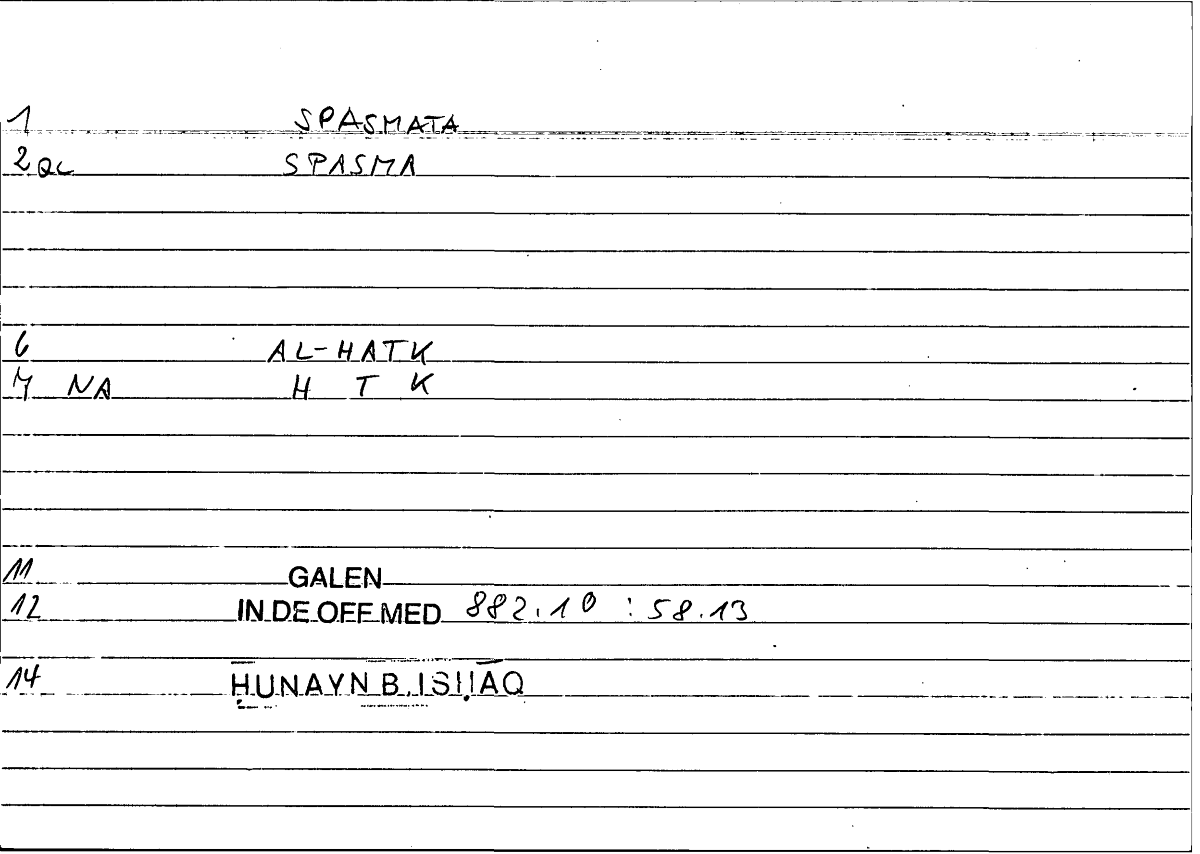 1 SPASMATA
2 QC SPASMA
6 AL-HATK
7 NA H T K
11 GALEN
12 IN DE OFF MED 882.10 : 58.13
14 ḤUNAYN B. ISḤĀQ